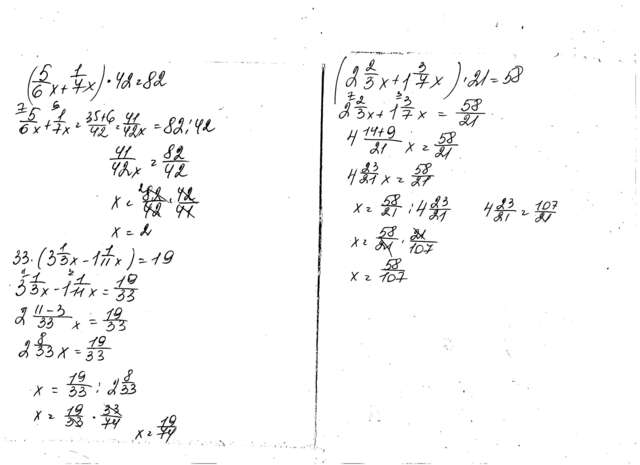 (5/6 x + 1/7 x) · 42 = 82
⁷5/6 x + ⁶1/7 x = 35+6/42 = 41/42 x = 82 : 42
41/42 x = 82/42
x = 82/42 · 42/41
x = 2
33 · (3 1/3 x - 1 1/11 x) = 19
3 1/3 x - 1 1/11 x = 19/33
2 11-3/33 x = 19/33
2 8/33 x = 19/33
x = 19/33 : 2 8/33
x = 19/33 · 33/74
x = 19/74
(2 2/3 x + 1 3/7 x) · 21 = 58
2 ⁷2/3 x + 1 ³3/7 x = 58/21
4 14+9/21 x = 58/21
4 23/21 x = 58/21
x = 58/21 : 4 23/21 4 23/21 = 107/21
x = 58/21 · 21/107
x = 58/107